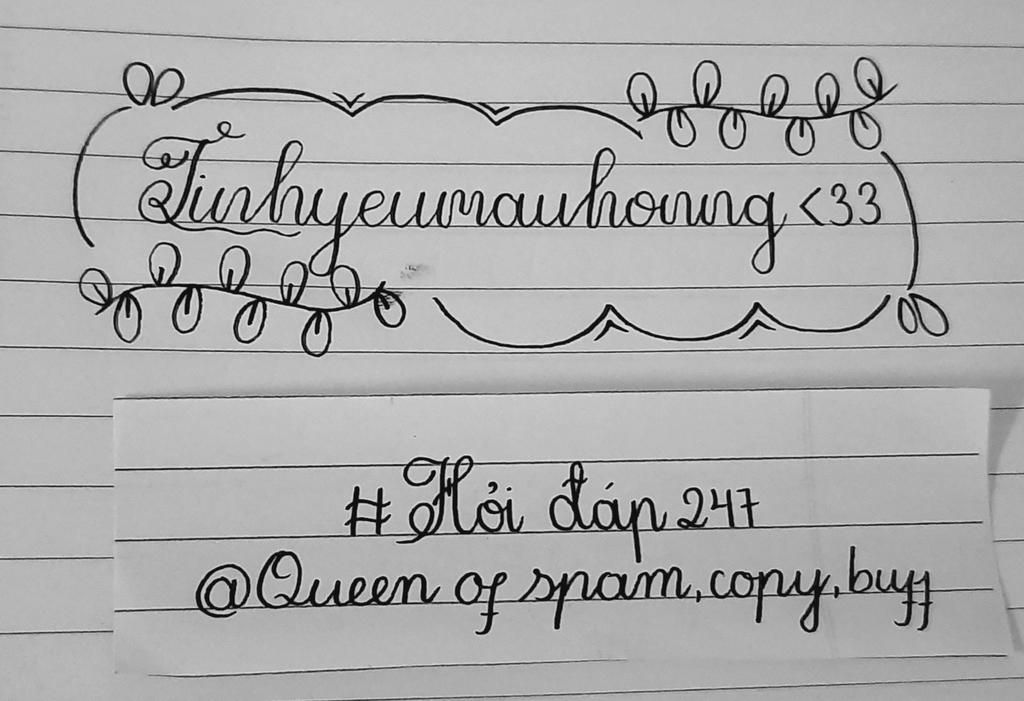 Tinhyeumauhoung <33
# Hỏi đáp 247
@Queen of spam, copy, buff